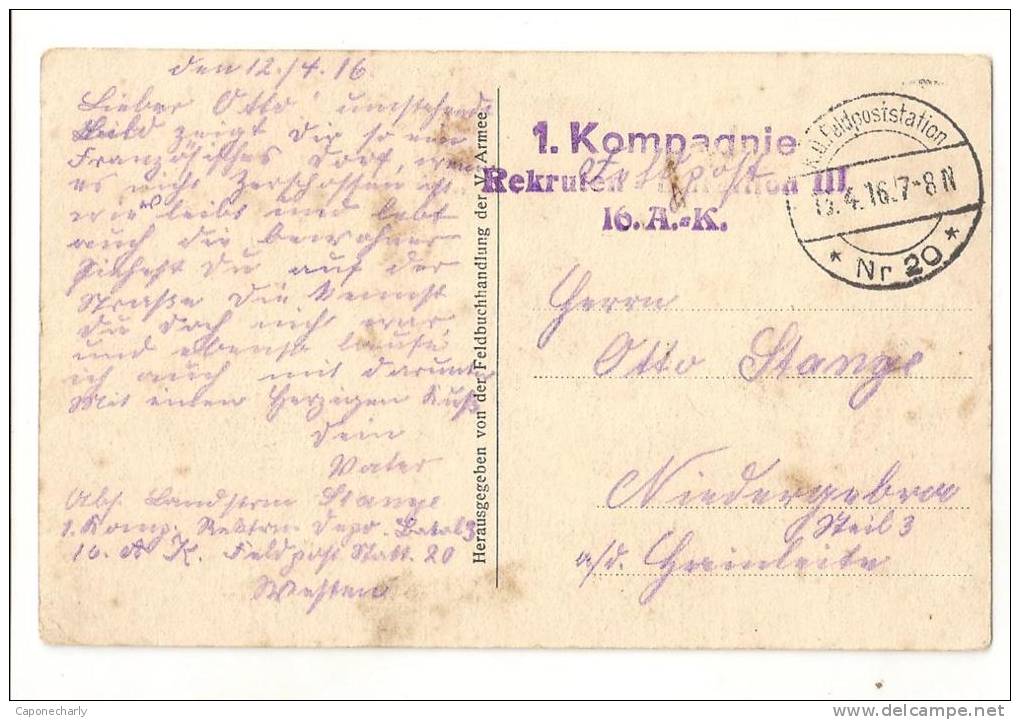 den 12./4.16.
Lieber Otto! umstehend
Bild zeigt dir so ein
Französisches Dorf wenn
es nicht zerschossen ist.
wie leibt und lebt
auch die bewohner
siehest Du auf der
Straße die kennst
du doch nicht
und ebenso laufe
ich auch mit darunter
Mit einen herzigen Kuß
Dein
Vater
Abs. Landstrm Stange
1. Komp. Rekten Depo. Batal 3
16. A. K. Feldpost Statt. 20
Westen
Herausgegeben von der Feldbuchhandlung der V. Armee.
1. Kompagnie
Rekruten III
16. A.-K.
Feldpost
K.D. Feldpoststation
13.4.16.7-8N
* Nr 20 *
Herrn
Otto Stange
Niedergebra
Steil 3
a/d. Hainleite
Caponecharly
www.delcampe.net